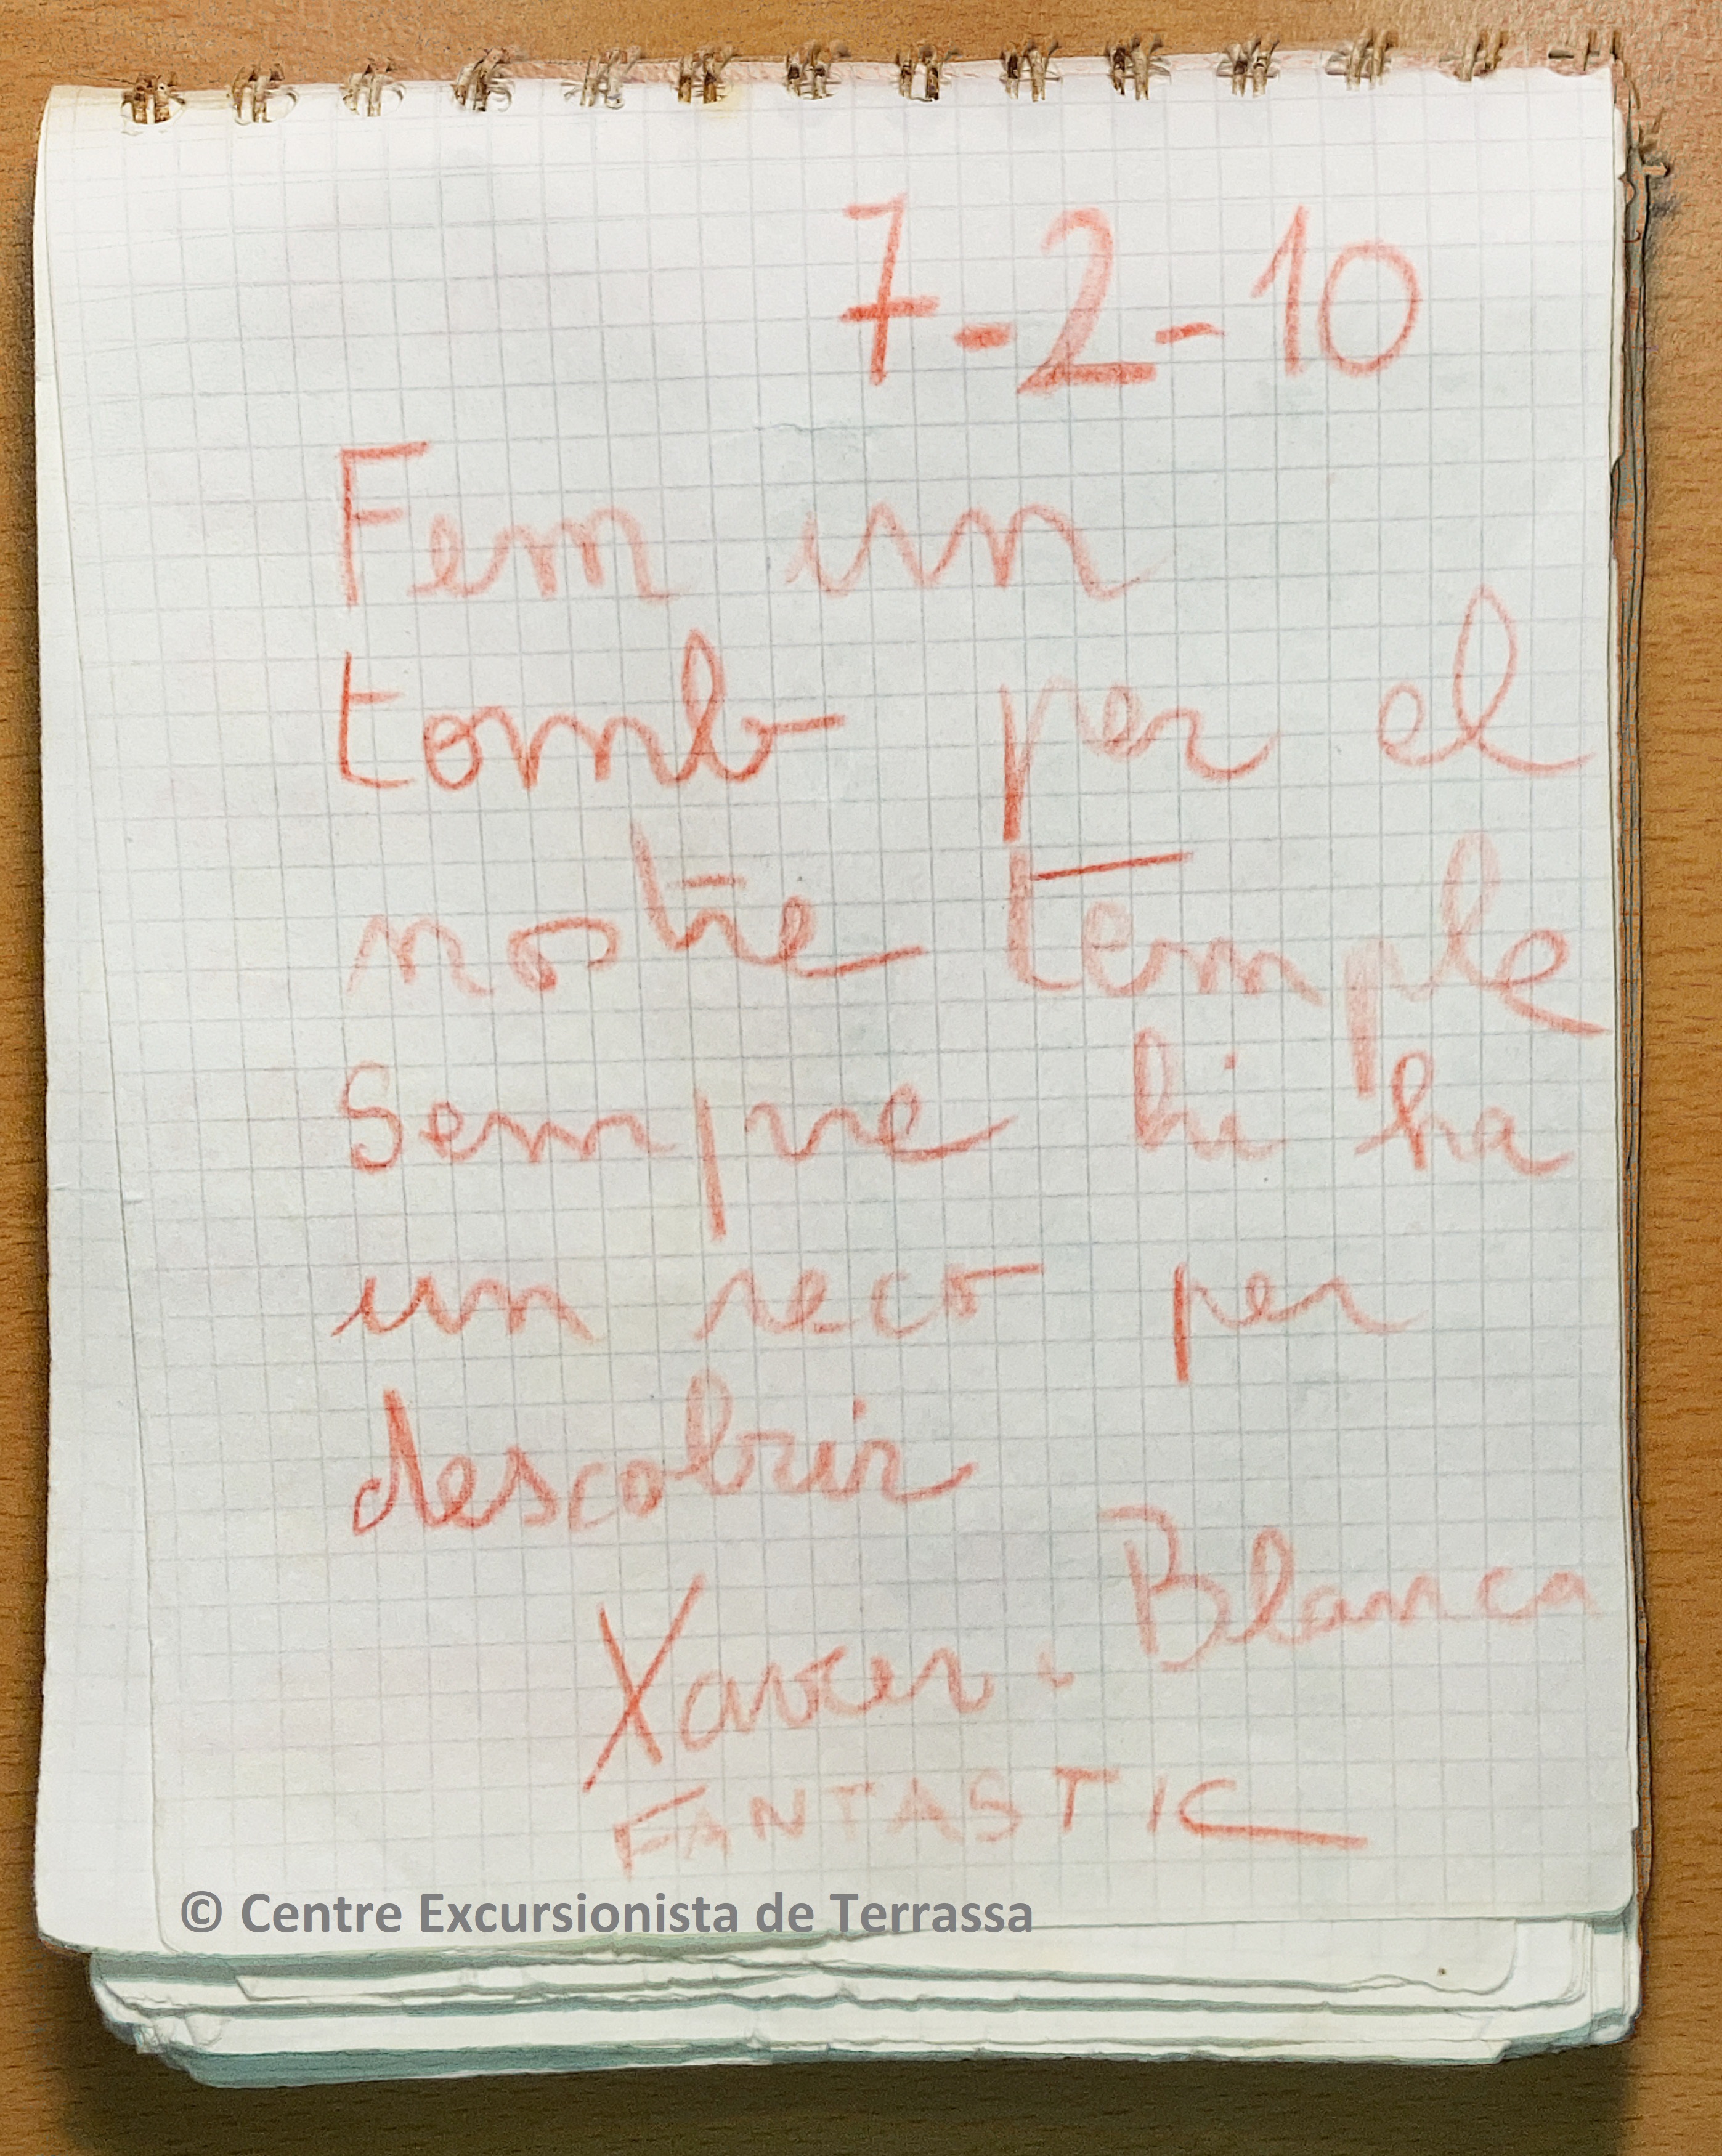 7-2-10
Fem un
tomb per el
nostre temple
Sempre hi ha
un reco per
descobrir
Xavier i Blanca
FANTASTIC
© Centre Excursionista de Terrassa